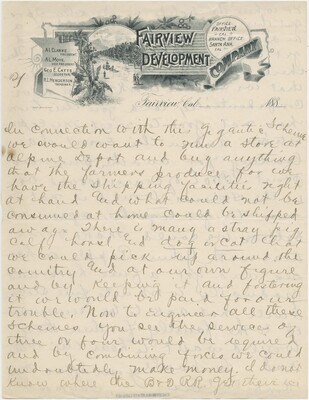 THE
FAIRVIEW
DEVELOPMENT
COMPANY
OFFICE
Fairview
CAL.
BRANCH OFFICE
SANTA ANA,
CAL.
Fairview Cal. 188
In connection with this gigantic Scheme
we would want to run a Store at
Alpine Depot and buy anything
that the farmers produce for we
have the shipping facilities right
at hand and what could not be
consumed at home could be shipped
away. There is many a stray pig
calf horse and dog or cat that
we could pick up around the
country and at our own figure
and by keeping it and fostering
it we would be paid for our
trouble. Now to Engineer all these
Schemes You see the services of
three or four would be required
and by combining forces we could
undoubtedly make money. I do not
know where the B&D R.R. get their